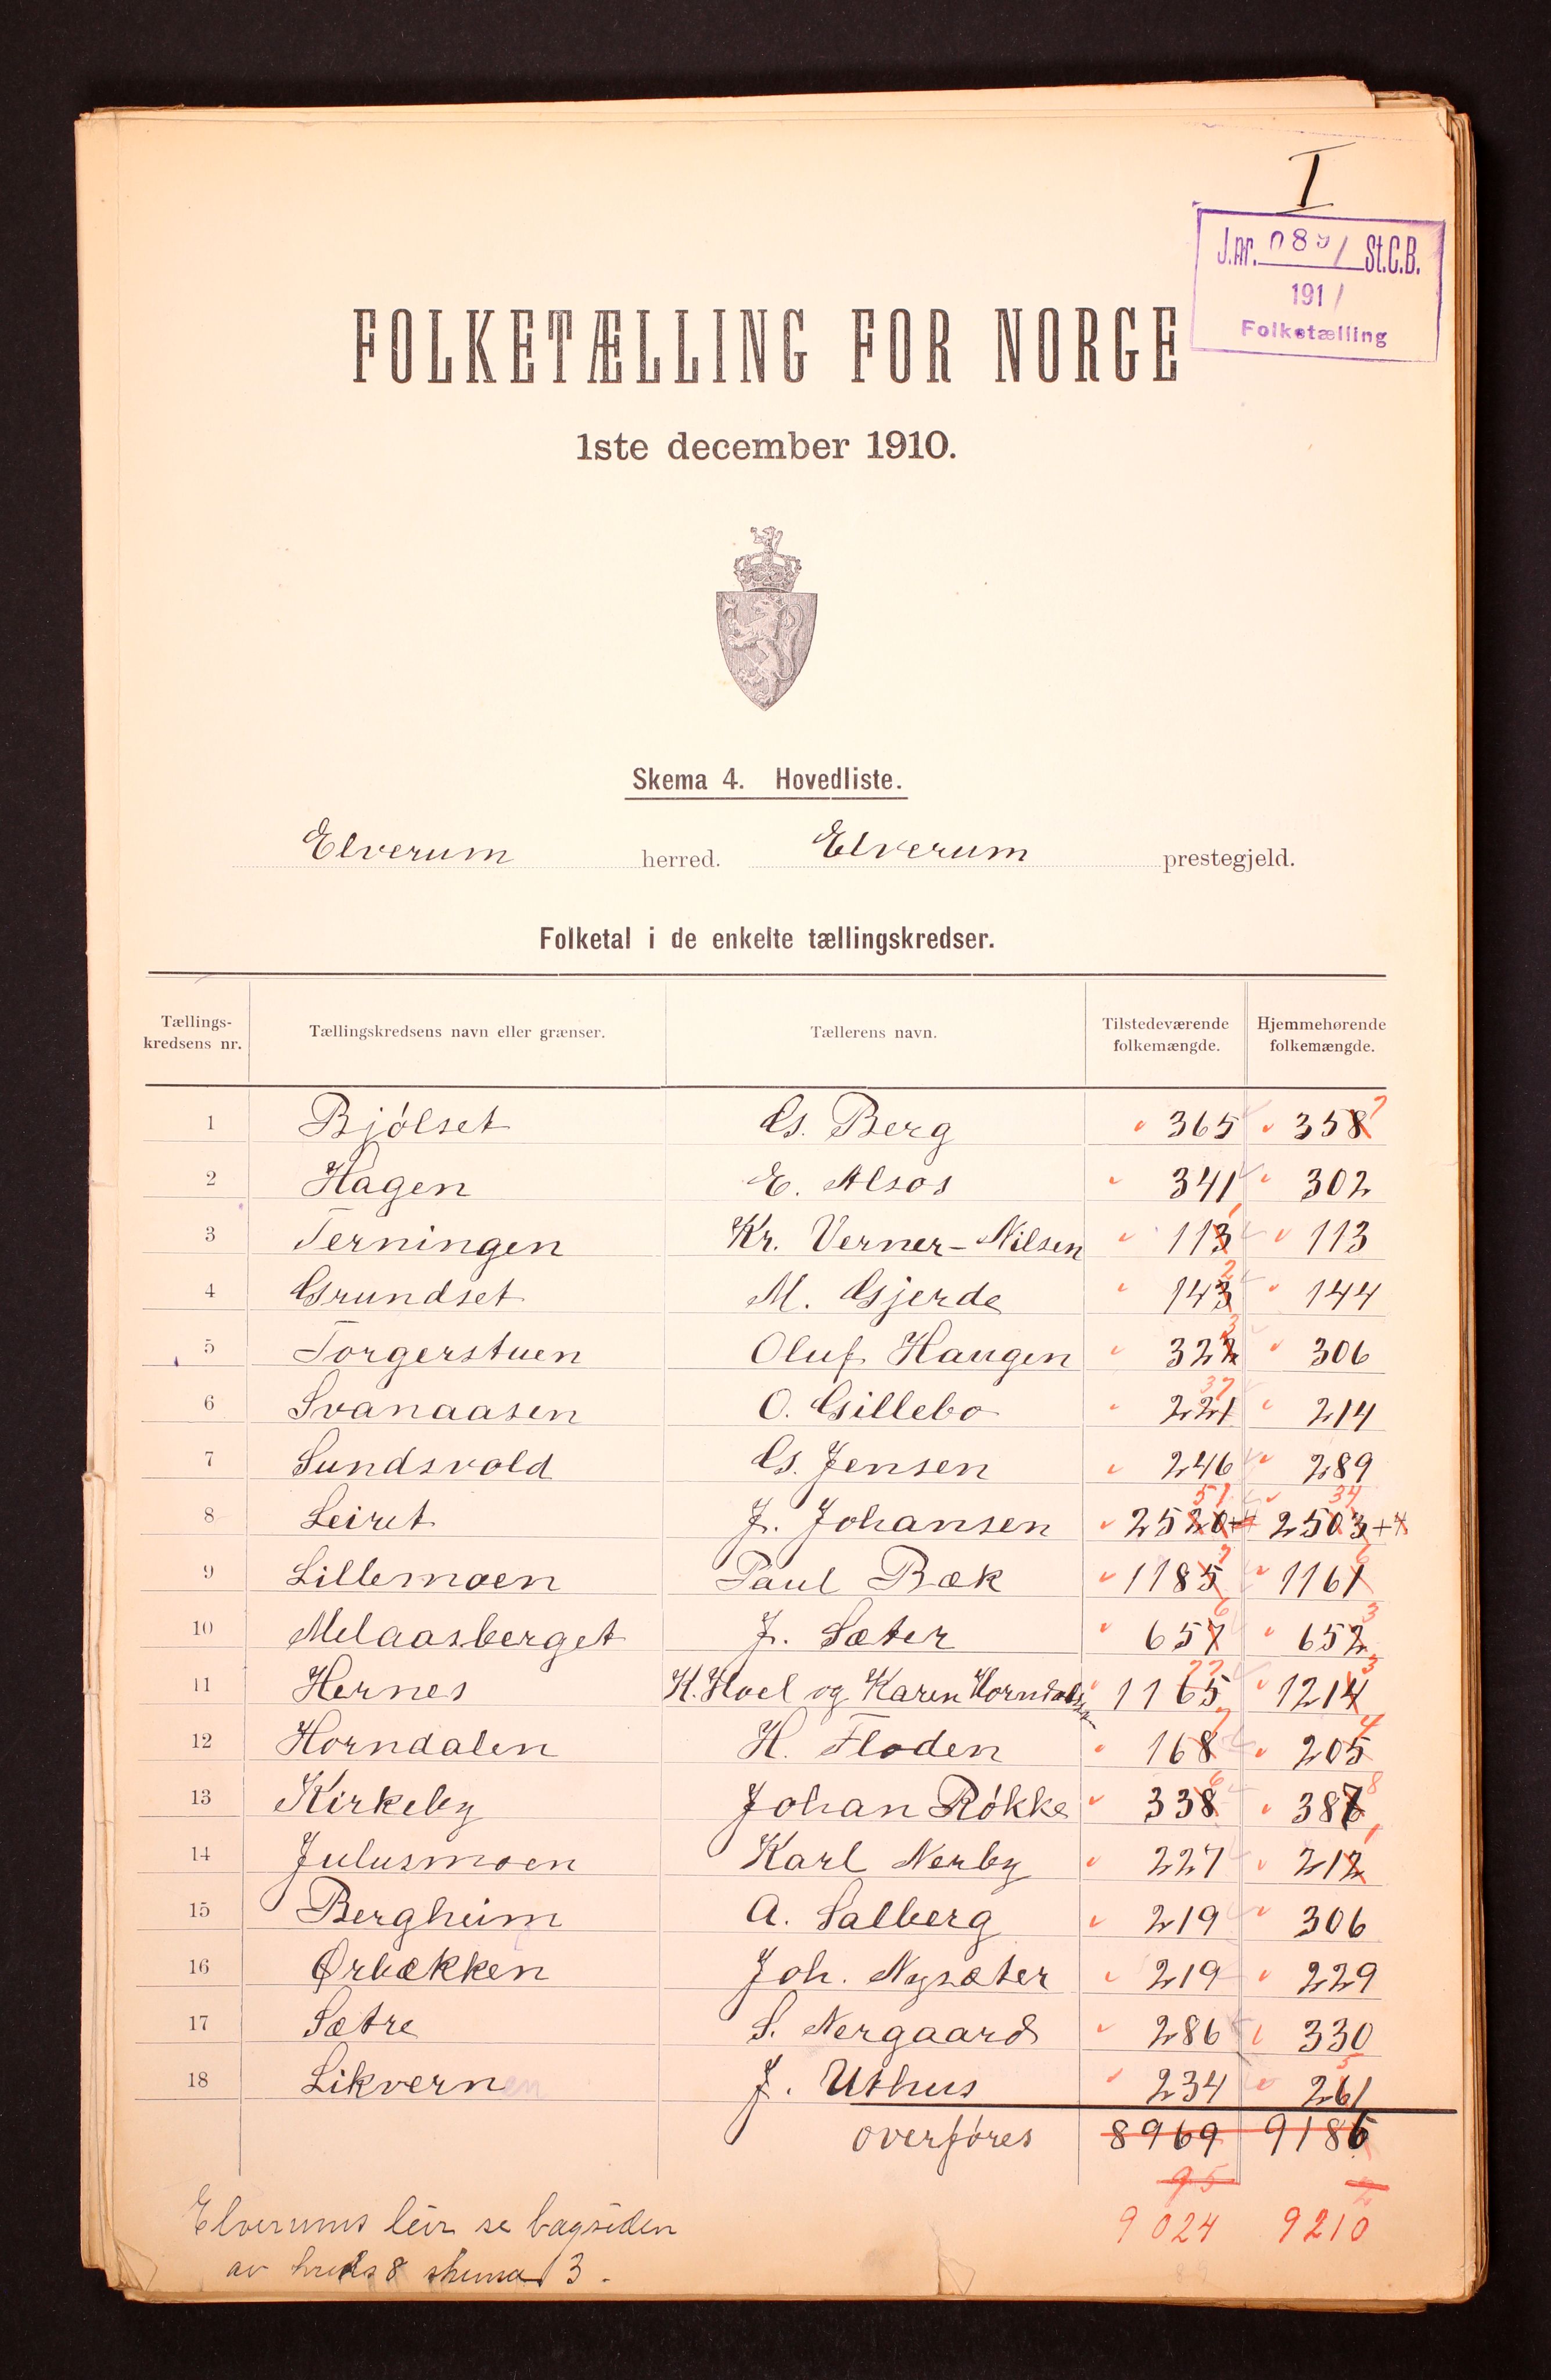 I
J.nr. 0891 St.C.B.
1911
Folketælling
FOLKETÆLLING FOR NORGE
1ste december 1910.
Skema 4. Hovedliste.
Elverum herred. Elverum prestegjeld.
Folketal i de enkelte tællingskredser.
Tællings-kredsens nr. Tællingskredsens navn eller grænser. Tællerens navn. Tilstedeværende folkemængde. Hjemmehørende folkemængde.
1 Bjölset G. Berg 365 358 7
2 Hagen E. Alsos 341 302
3 Terningen Kr. Verner-Nilsen 113 1 113
4 Grundset M. Gjerde 143 2 144
5 Torgerstuen Oluf Haugen 322 3 306
6 Svanaasen O. Gillebo 221 37 214
7 Sundsvold G. Jensen 246 289
8 Leiret J. Johansen 2520+ 51 2503+4 34
9 Lillemoen Paul Bæk 1185 7 1161 6
10 Melaasberget J. Sæter 657 6 652 3
11 Hernes K. Hoel og Karen Horndalsen 1165 77 1214 3
12 Horndalen H. Floden 168 7 205 4
13 Kirkeby Johan Røkke 338 6 387 8
14 Julusmoen Karl Nerby 227 212 1
15 Bergheim A. Salberg 219 306
16 Ørbækken Joh. Nysæter 219 229
17 Sætre S. Nergaard 286 330
18 Likvernen J. Uthus 234 261 5
overföres 8969 9186
95 2
9024 9210
Elverums leir se bagsiden
av kreds 8 skema 3.